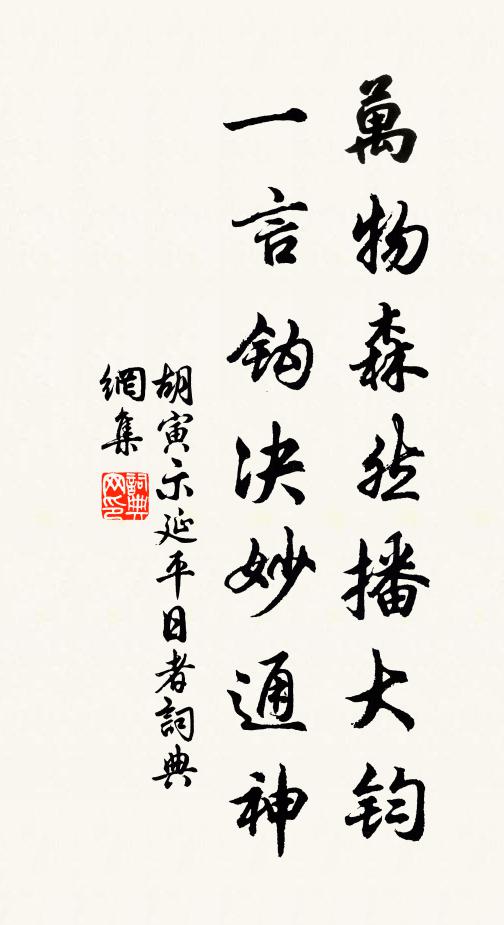 萬物森然播大鈞
一言鈎決妙通神
胡寅示延平日者詞典
網集
詞典
网印